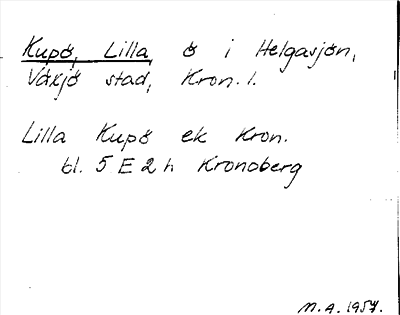 Kupö, Lilla, ö i Helgasjön,
Växjö stad, Kron. l.
Lilla Kupö ek Kron.
bl. 5 E 2 h Kronoberg
M.A. 1957.